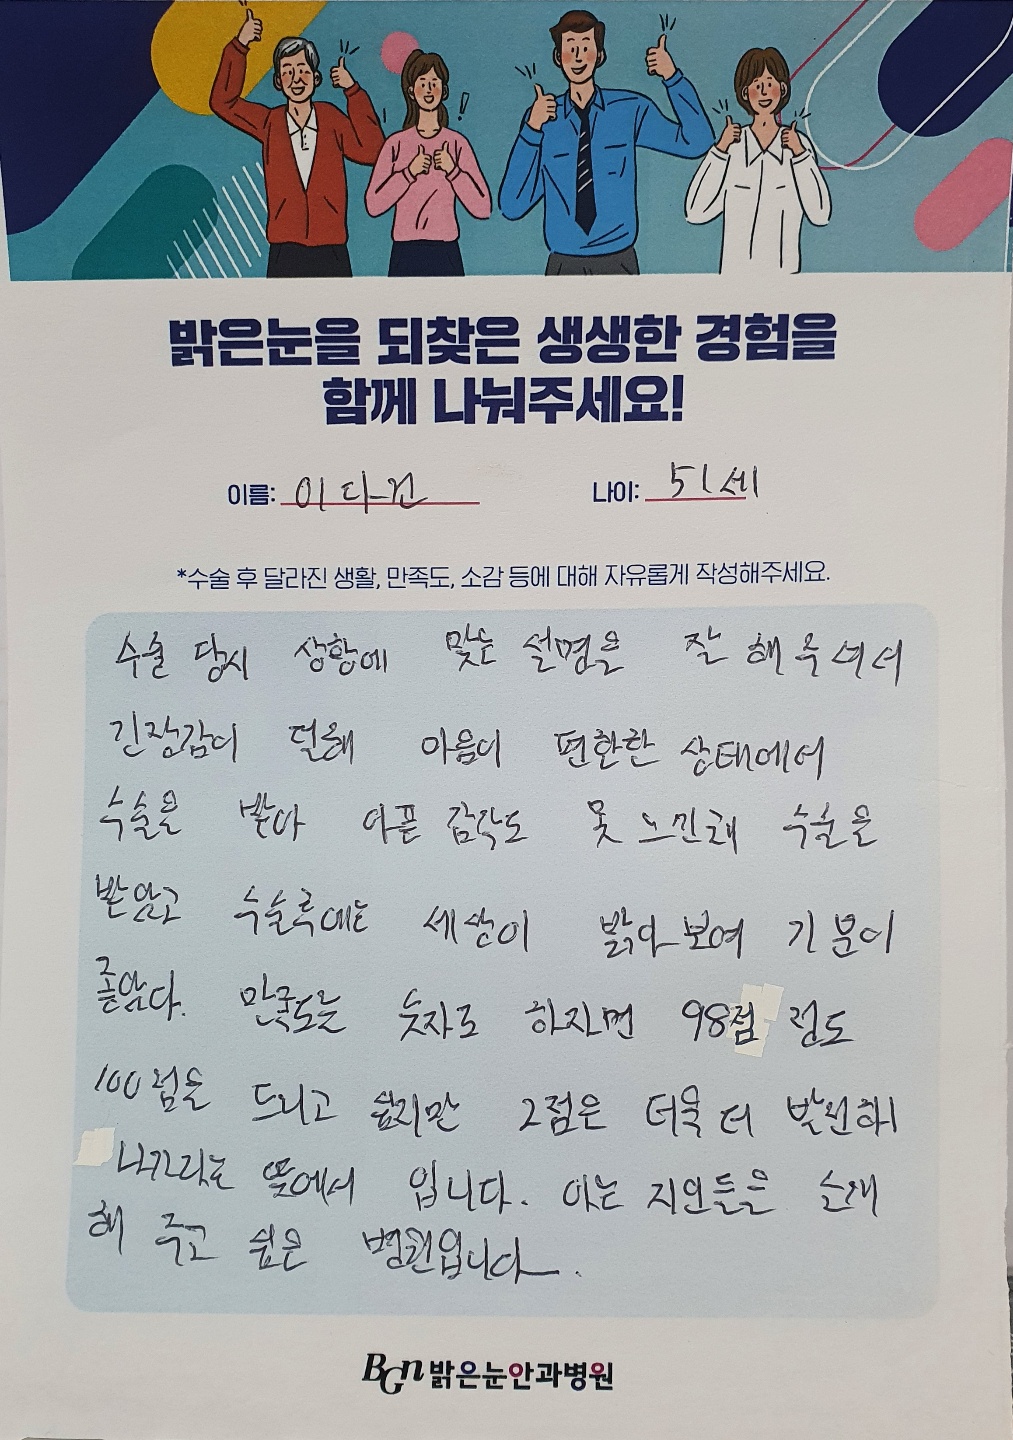 밝은눈을 되찾은 생생한 경험을
함께 나눠주세요!
이름: 이다건 나이: 51세
*수술 후 달라진 생활, 만족도, 소감 등에 대해 자유롭게 작성해주세요.
수술 당시 상황에 맞는 설명을 잘 해주셔서
긴장감이 덜해 마음이 편한한 상태에서
수술을 받아 아픈 감각도 못 느낀채 수술을
받았고 수술후에는 세상이 밝아보여 기분이
좋았다. 만족도는 숫자로 하자면 98점 정도
100점을 드리고 싶지만 2점은 더욱 더 발전해
나가라는 뜻에서 입니다. 아는 지인들을 소개
해 주고 싶은 병원입니다.
BGN 밝은눈안과병원